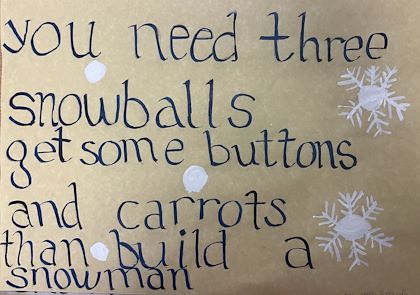 you need three
snowballs
get some buttons
and carrots
than build a
snowman